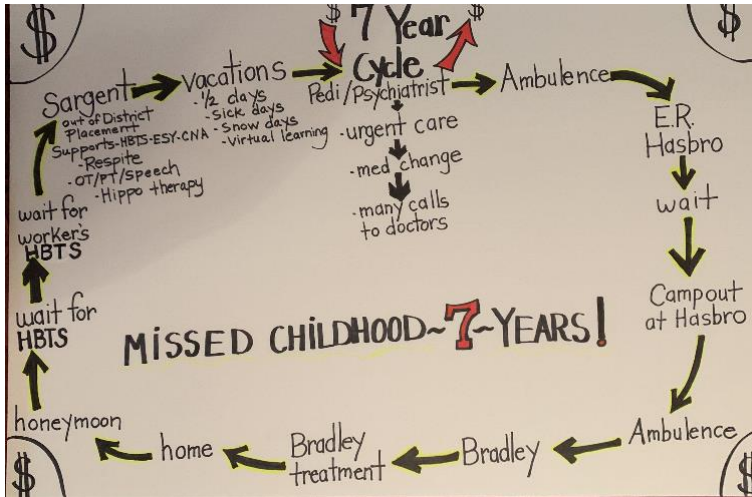 $
$
$
$
7 Year
Cycle
Pedi/Psychiatrist
-urgent care
-med change
-many calls
to doctors
Ambulence
E.R.
Hasbro
wait
Campout
at Hasbro
Ambulance
$
Bradley
Bradley
treatment
home
honeymoon
$
wait for
HBTS
wait for
worker's
HBTS
Sargent
out of District
Placement
Supports-HBTS-ESY-CNA
-Respite
-OT/PT/Speech
-Hippo therapy
Vacations
-1/2 days
-Sick days
-Snow days
-Virtual learning
MISSED CHILDHOOD~7~YEARS!